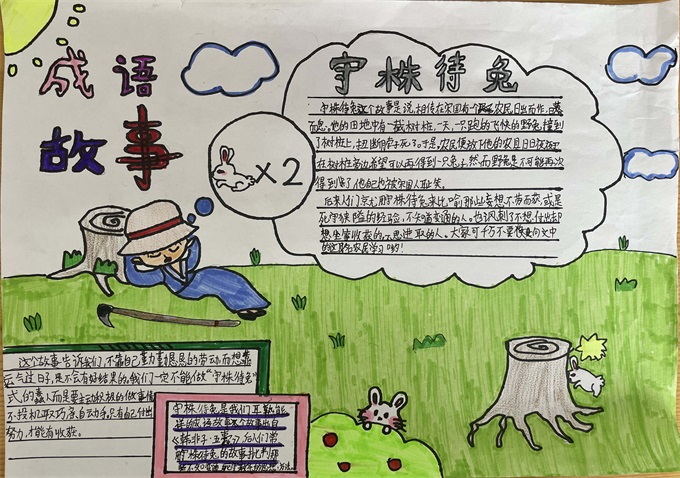 成语
故事
守株待兔
×2
守株待兔这个故事是说，相传在宋国有一个农民，日出而作，日落
而息，他的田地中有一截树桩，一天，一只跑的飞快的野兔撞到
了树桩上，扭断脖子死了。于是，农民便放下他的农具日日夜夜
在树桩旁边希望可以再得到一只兔子。然而野兔是不可能再次
得到了，他自己也被宋国人耻笑。
后来人们就用守株待兔来比喻那些妄想不劳而获，或是
死守狭隘的经验，不知道变通的人。也讽刺了不想付出却
想坐等收获的，不思进取的人。大家可千万不要向文中
的这名农民学习哟！
这个故事告诉我们，不靠自己勤勤恳恳的劳动，而想靠
运气过日子，是不会有好结果的，我们一定不能做“守株待兔”
式的蠢人，而是要主动积极的做事情
不投机取巧，自动手，只有自己付出
努力，才能有收获。
守株待兔是我们耳熟能
详的成语故事，这个故事出自
《韩非子·五蠹》，后人们常
用守株待兔的故事批判那